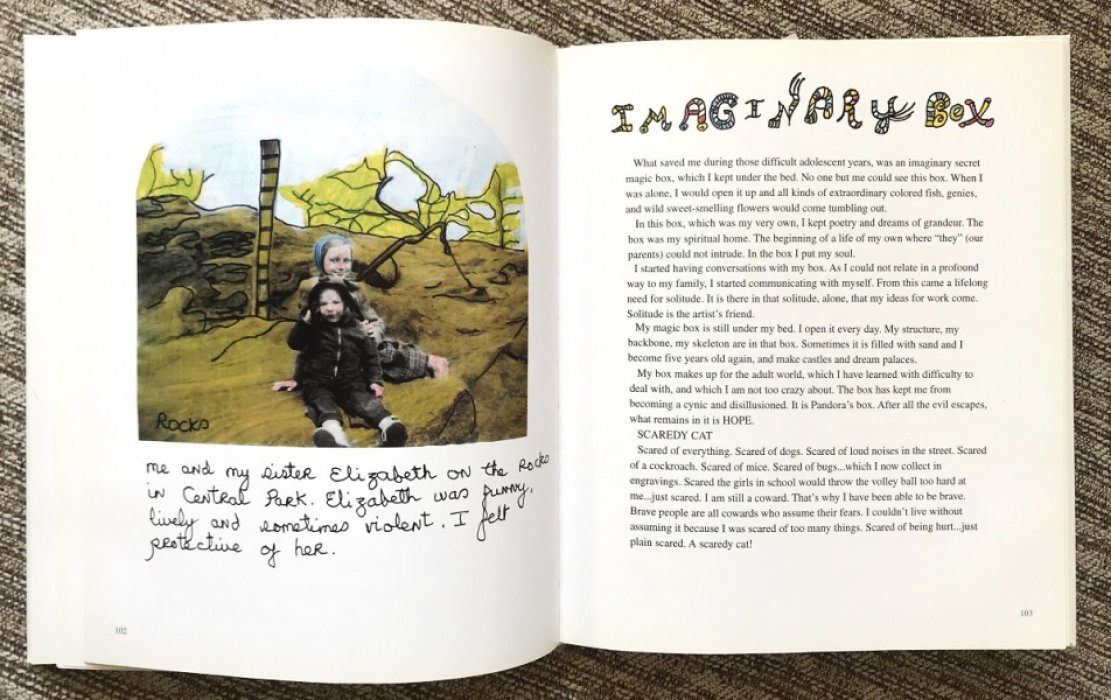 Rocks
me and my sister Elizabeth on the Rocks
in Central Park. Elizabeth was funny,
lively and sometimes violent. I felt
protective of her.
102
IMAGINARY BOX
What saved me during those difficult adolescent years, was an imaginary secret
magic box, which I kept under the bed. No one but me could see this box. When I
was alone, I would open it up and all kinds of extraordinary colored fish, genies,
and wild sweet-smelling flowers would come tumbling out.
In this box, which was my very own, I kept poetry and dreams of grandeur. The
box was my spiritual home. The beginning of a life of my own where “they” (our
parents) could not intrude. In the box I put my soul.
I started having conversations with my box. As I could not relate in a profound
way to my family, I started communicating with myself. From this came a lifelong
need for solitude. It is there in that solitude, alone, that my ideas for work come.
Solitude is the artist’s friend.
My magic box is still under my bed. I open it every day. My structure, my
backbone, my skeleton are in that box. Sometimes it is filled with sand and I
become five years old again, and make castles and dream palaces.
My box makes up for the adult world, which I have learned with difficulty to
deal with, and which I am not too crazy about. The box has kept me from
becoming a cynic and disillusioned. It is Pandora’s box. After all the evil escapes,
what remains in it is HOPE.
SCAREDY CAT
Scared of everything. Scared of dogs. Scared of loud noises in the street. Scared
of a cockroach. Scared of mice. Scared of bugs...which I now collect in
engravings. Scared the girls in school would throw the volley ball too hard at
me...just scared. I am still a coward. That’s why I have been able to be brave.
Brave people are all cowards who assume their fears. I couldn’t live without
assuming it because I was scared of too many things. Scared of being hurt...just
plain scared. A scaredy cat!
103